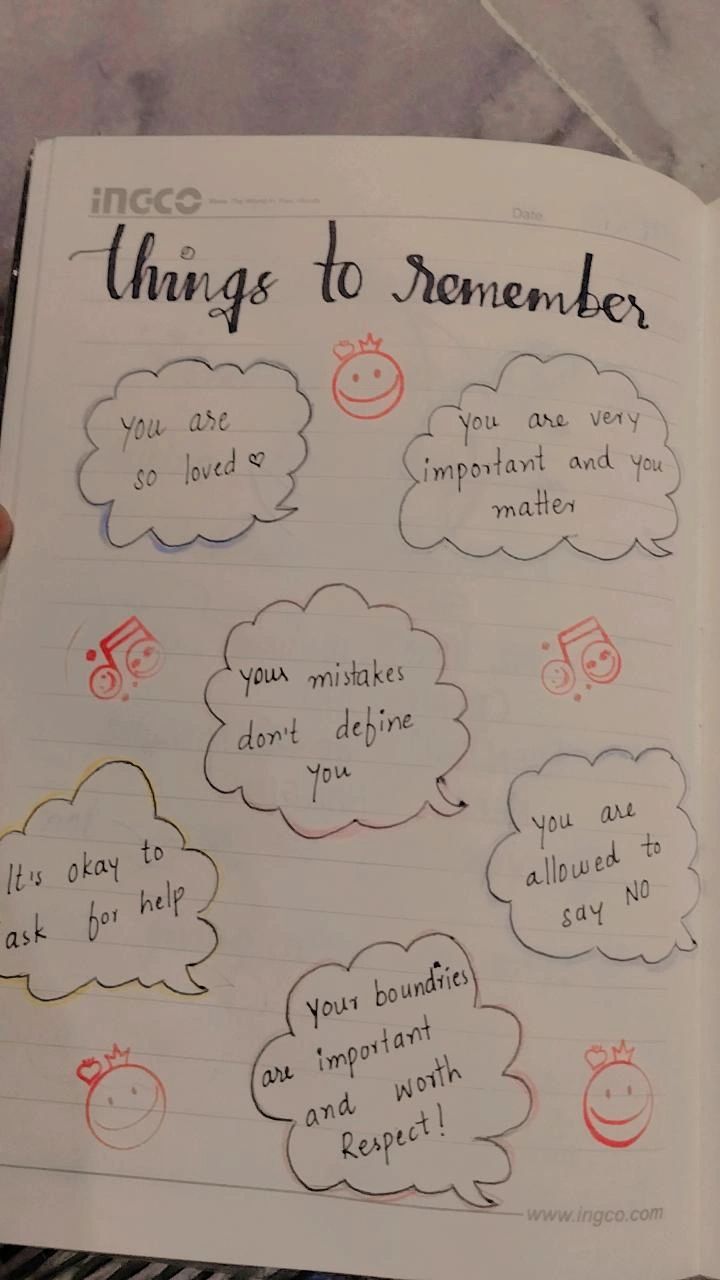 INGCO
Date
things to remember
you are
so loved ♡
you are very
important and you
matter
your mistakes
don't define
you
It's okay to
ask for help
you are
allowed to
say NO
your boundries
are important
and worth
Respect!
www.ingco.com